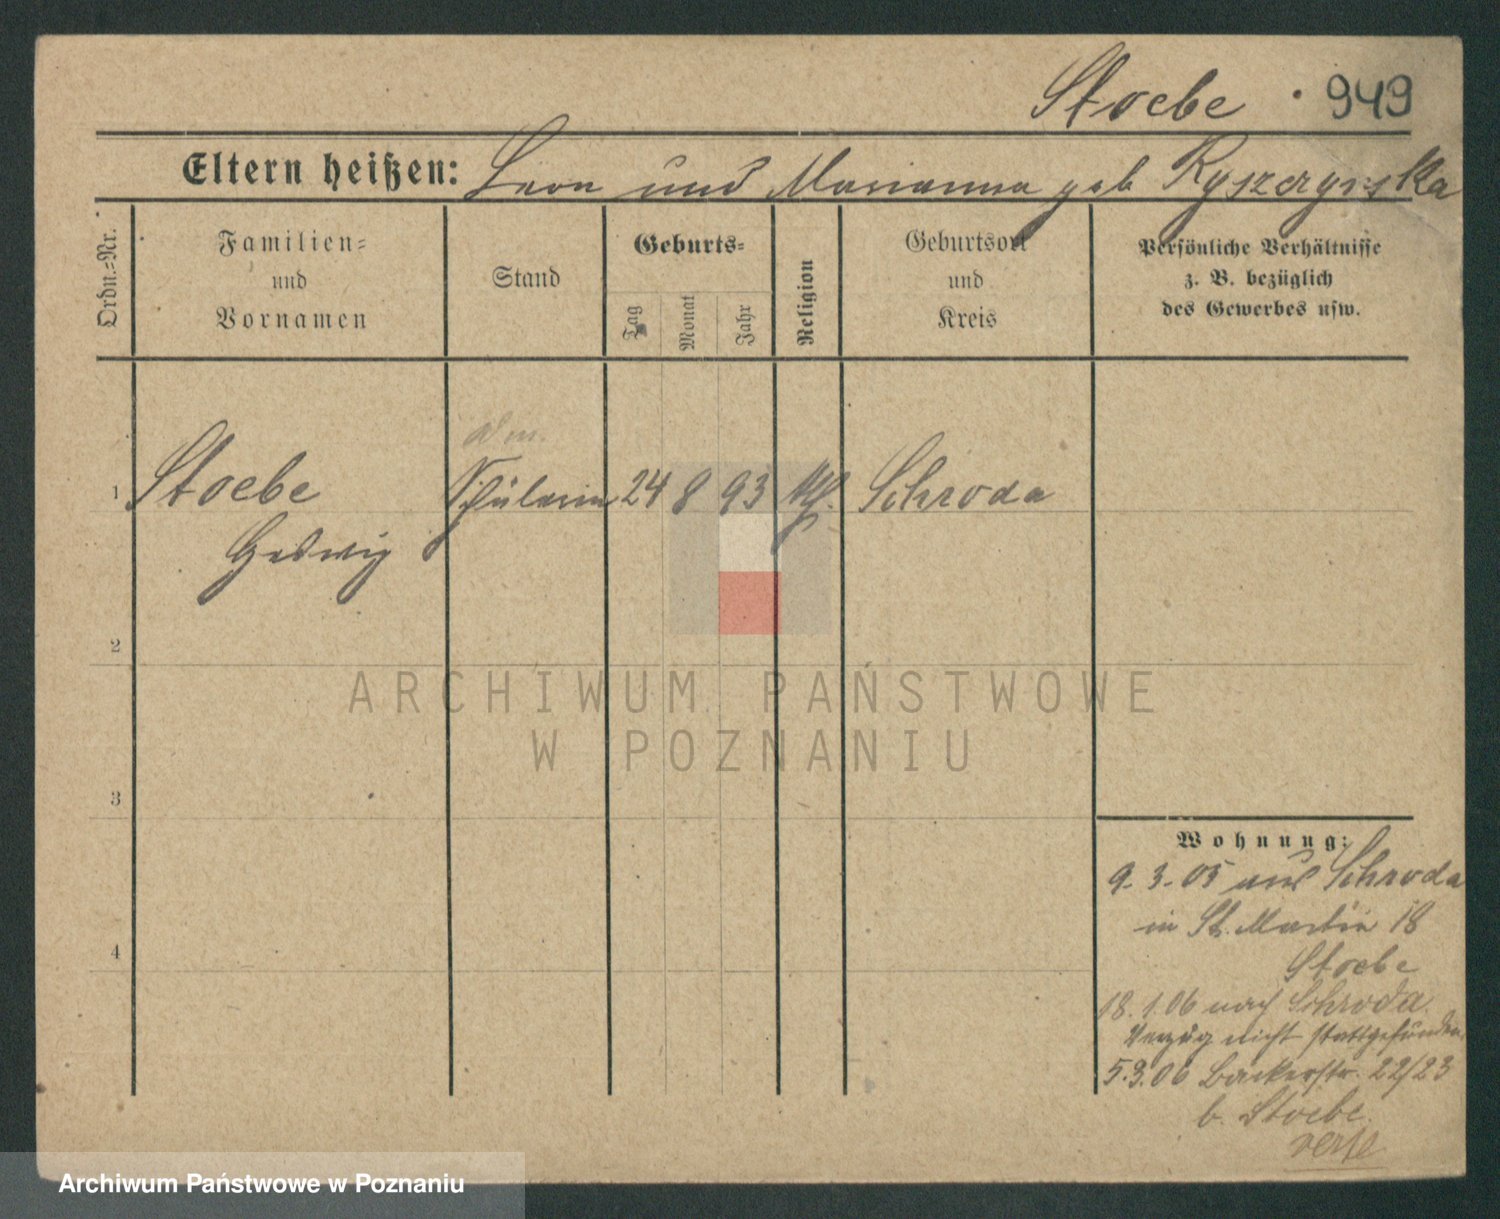 Stoebe . 949
Eltern heißen: Leon und Marianna geb Ryszczynska
Ordn.=Nr.
Familien=
und
Vornamen
Stand
Geburts=
Tag
Monat
Jahr
Religion
Geburtsort
und
Kreis
Persönliche Verhältnisse
z. B. bezüglich
des Gewerbes usw.
1 Stoebe Schülerin 24 8 93 Schroda
Hedwig
2
ARCHIWUM PAŃSTWOWE
W POZNANIU
3
Wohnung:
9.3.05 aus Schroda
in St. Martin 18
Stoebe
4
18.1.06 nach Schroda
Verzug nicht stattgefunden
5.3.06 Bäckerstr. 22/23
b. Stoebe.
verte
Archiwum Państwowe w Poznaniu